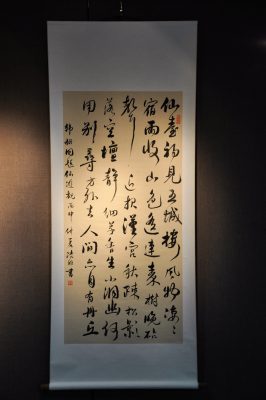 仙臺初見五城樓風物凄〻
宿雨收山色遥連秦樹晚砧
聲近報漢宫秋疎松影
落空壇静細草香生小洞幽何
用别尋方外去人间亦自有丹丘
韩翃同题仙遊观丙申書